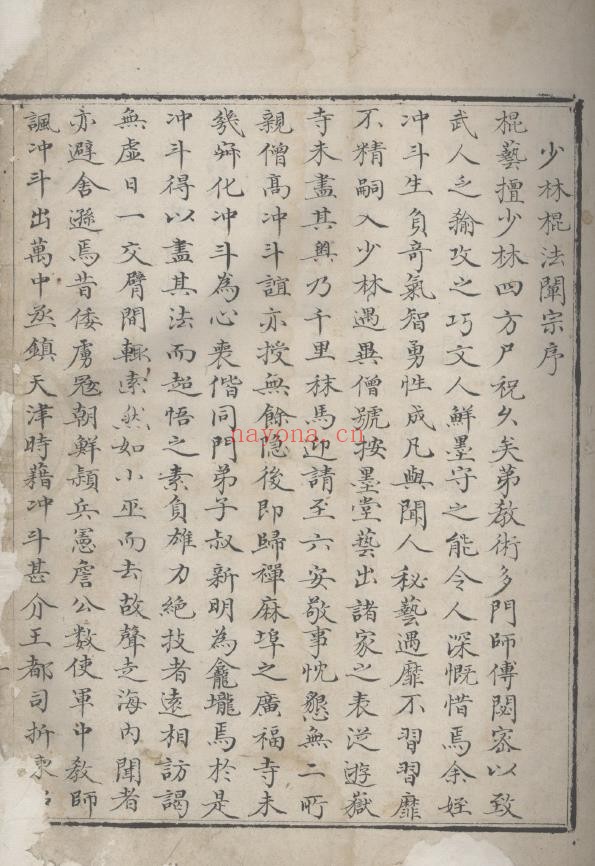 少林棍法闡宗序
棍藝擅少林四方尸祝久矣第教術多門師傅閟宻以致
武人乏輸攻之巧文人鮮墨守之能令人深慨惜焉余姪
冲斗生負奇氣智勇性成凡與聞人秘藝遇靡不習習靡
不精嗣入少林遇異僧號按墨堂藝出諸家之表迨遊嶽
寺未盡其奥乃千里秣馬迎請至六安敬事忱懇無二所
親僧髙冲斗誼亦授無餘隐後即歸禪麻埠之廣福寺未
幾舜化冲斗為心喪偕同門弟子叔新明為龕壠焉於是
冲斗得以盡其法而超悟之素負雄力絶技者遠相訪謁
無虚日一交臂間輒索然如小巫而去故聲走海内聞者
亦避舍遜焉昔倭虜冦朝鮮頴兵憲詹公数使軍中教師
諷冲斗出萬中丞鎮天津時藉冲斗甚介王都司折柬
nayona.cn